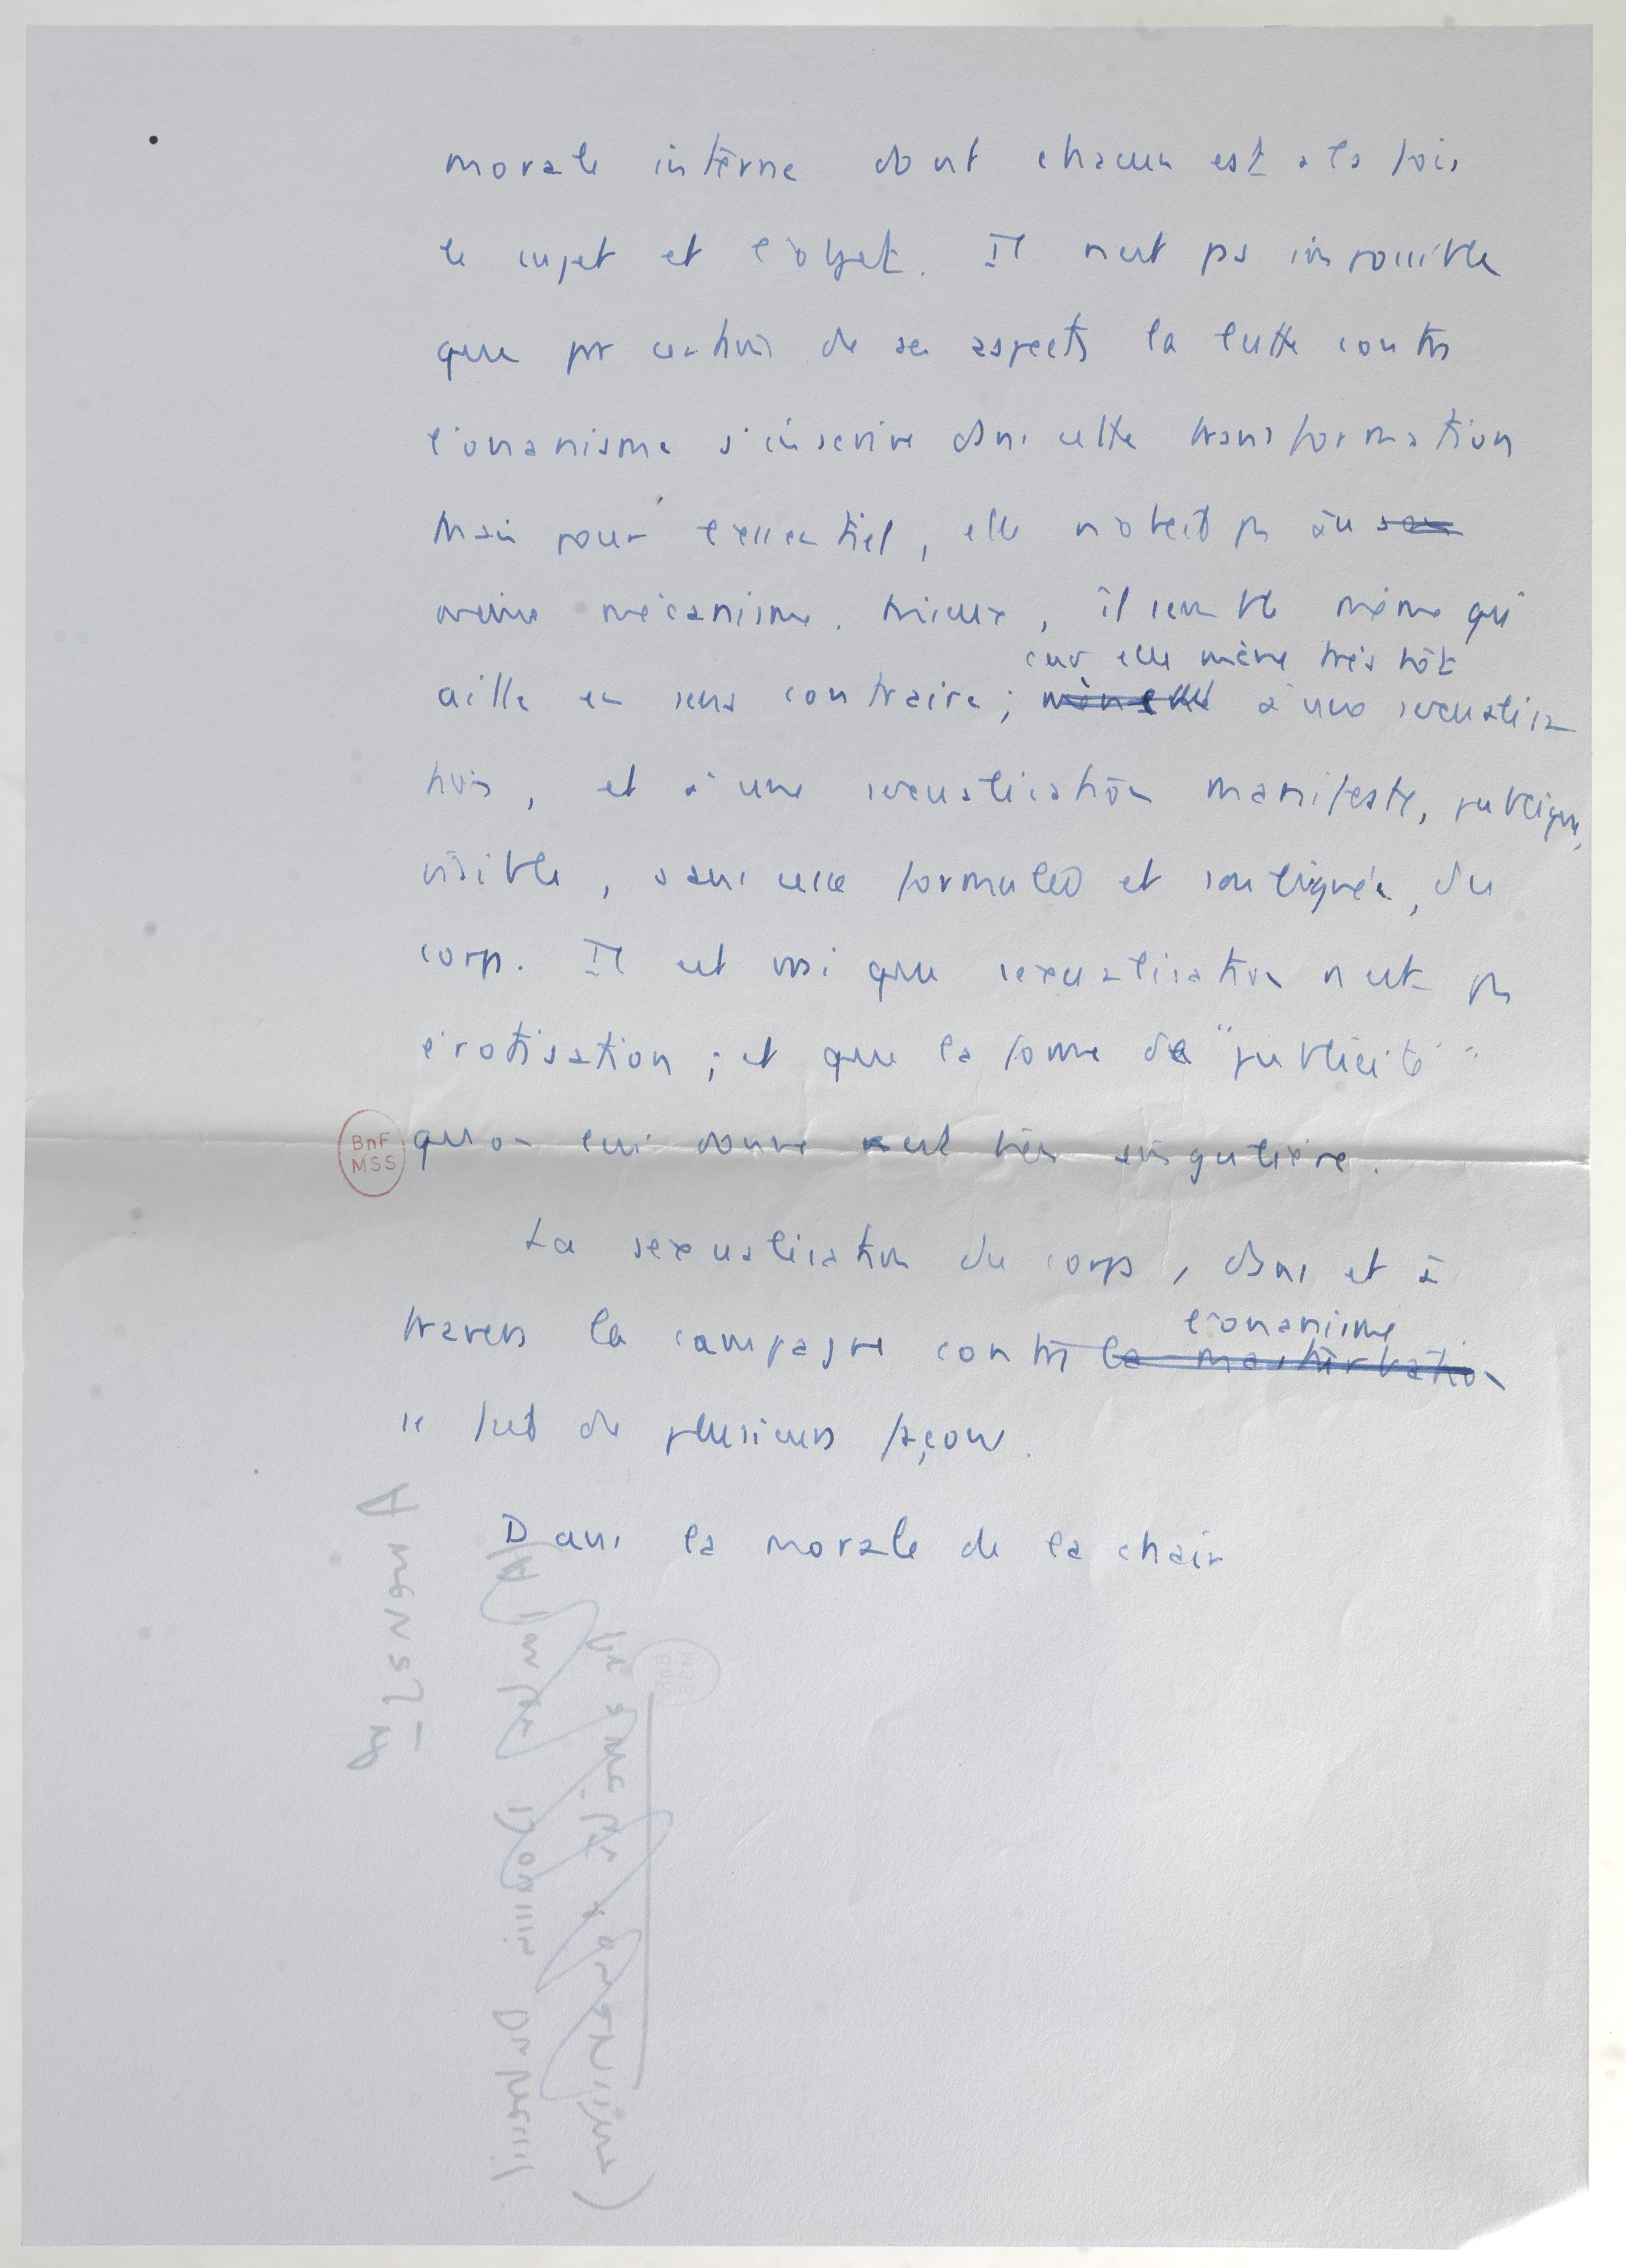 morale interne dont chacun est à la fois
le sujet et l'objet. Il n'est pas impossible
que par certains de ses aspects la lutte contre
l'onanisme s'inscrive dans cette transformation
Mais pour l'essentiel, elle n'obéit pas au
même mécanisme. Mieux, il semble même qu'
car elle mène très tôt
aille en sens contraire; mène elle à une sexualisa
tion, et à une sexualisation manifeste, publique,
visible, sans cesse formulée et soulignée, du
corps. Il est vrai que sexualisation n'est pas
érotisation ; et que la forme de "publicité"
qu'on lui donne est très singulière.
BnF
MSS
La sexualisation du corps, dans et à
l'onanisme
travers la campagne contre la masturbation
se fait de plusieurs façons.
Dans la morale de la chair